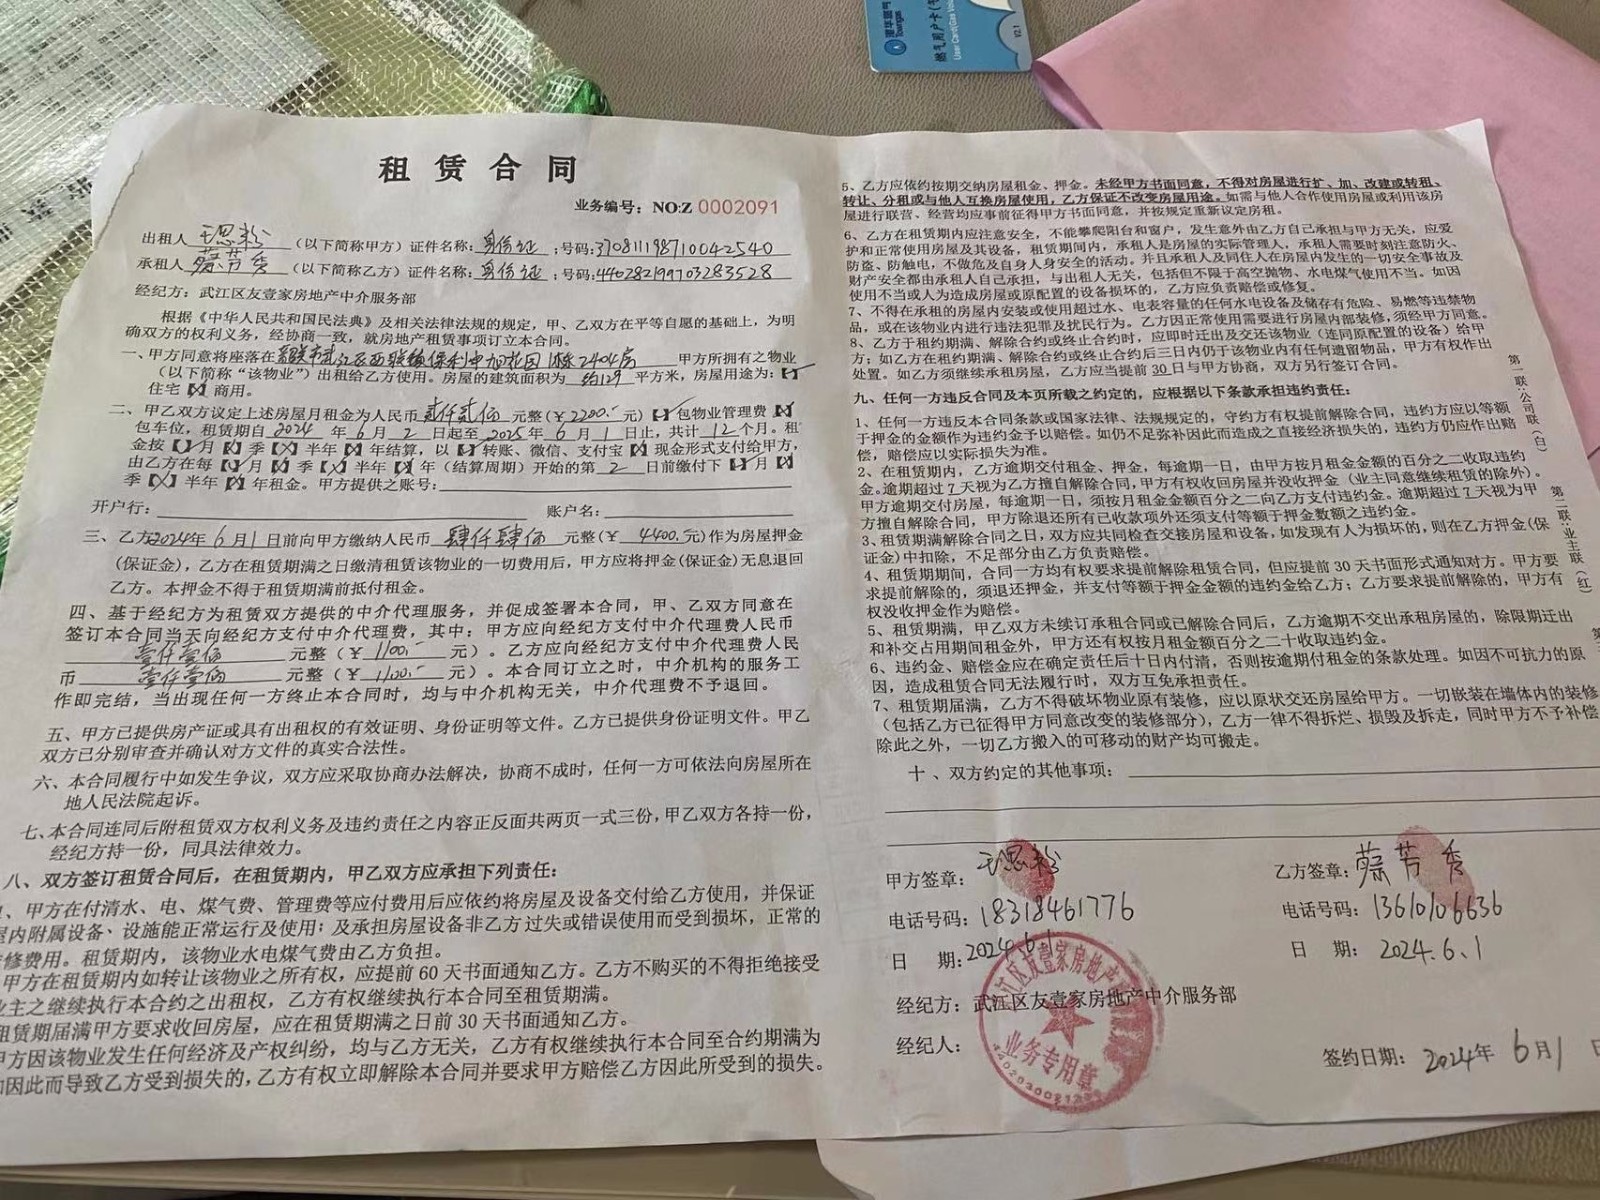 港华燃气
Towngas
燃气用户卡
User Card/Gas
V2.1
租赁合同
业务编号：NO:Z 0002091
出租人 王思粉 （以下简称甲方）证件名称：身份证 ；号码：370811198710042540
承租人 蔡芳秀 （以下简称乙方）证件名称：身份证 ；号码：440282199703283528
经纪方：武江区友壹家房地产中介服务部
根据《中华人民共和国民法典》及相关法律法规的规定，甲、乙双方在平等自愿的基础上，为明
确双方的权利义务，经协商一致，就房地产租赁事项订立本合同。
一、甲方同意将座落在韶关市武江区西联镇保利中 花园 2404房 甲方所拥有之物业
（以下简称“该物业”）出租给乙方使用。房屋的建筑面积为 约129 平方米，房屋用途为：【✓】
住宅【X】商用。
二、甲乙双方议定上述房屋月租金为人民币 贰仟贰佰 元整（￥2200.- 元）【✓】包物业管理费【X】
包车位，租赁期自 2024 年 6 月 2 日起至 2025 年 6 月 1 日止，共计 12 个月。租
金按【✓】月【X】季【X】半年【X】年结算，以【✓】转账、微信、支付宝【X】现金形式支付给甲方，
由乙方在每【✓】月【X】季【X】半年【X】年（结算周期）开始的第 2 日前缴付下【✓】月【X】
季【X】半年【X】年租金。甲方提供之账号：
开户行： 账户名：
三、乙方2024年 6月1日前向甲方缴纳人民币 肆仟肆佰 元整（￥ 4400.元）作为房屋押金
（保证金），乙方在租赁期满之日缴清租赁该物业的一切费用后，甲方应将押金（保证金）无息退回
乙方。本押金不得于租赁期满前抵付租金。
四、基于经纪方为租赁双方提供的中介代理服务，并促成签署本合同，甲、乙双方同意在
签订本合同当天向经纪方支付中介代理费，其中：甲方应向经纪方支付中介代理费人民币
壹仟壹佰 元整（￥ 1100.- 元）。乙方应向经纪方支付中介代理费人民
币 壹仟壹佰 元整（￥ 1100.- 元）。本合同订立之时，中介机构的服务工
作即完结，当出现任何一方终止本合同时，均与中介机构无关，中介代理费不予退回。
五、甲方已提供房产证或具有出租权的有效证明、身份证明等文件。乙方已提供身份证明文件。甲乙
双方已分别审查并确认对方文件的真实合法性。
六、本合同履行中如发生争议，双方应采取协商办法解决，协商不成时，任何一方可依法向房屋所在
地人民法院起诉。
七、本合同连同后附租赁双方权利义务及违约责任之内容正反面共两页一式三份，甲乙双方各持一份，
经纪方持一份，同具法律效力。
八、双方签订租赁合同后，在租赁期内，甲乙双方应承担下列责任：
、甲方在付清水、电、煤气费、管理费等应付费用后应依约将房屋及设备交付给乙方使用，并保证
屋内附属设备、设施能正常运行及使用；及承担房屋设备非乙方过失或错误使用而受到损坏，正常的
修费用。租赁期内，该物业水电煤气费由乙方负担。
甲方在租赁期内如转让该物业之所有权，应提前60天书面通知乙方。乙方不购买的不得拒绝接受
业主之继续执行本合约之出租权，乙方有权继续执行本合同至租赁期满。
租赁期届满甲方要求收回房屋，应在租赁期满之日前30天书面通知乙方。
甲方因该物业发生任何经济及产权纠纷，均与乙方无关，乙方有权继续执行本合同至合约期满为
如因此而导致乙方受到损失的，乙方有权立即解除本合同并要求甲方赔偿乙方因此所受到的损失。
5、乙方应依约按期交纳房屋租金、押金。未经甲方书面同意，不得对房屋进行扩、加、改建或转租、
转让、分租或与他人互换房屋使用，乙方保证不改变房屋用途。如需与他人合作使用房屋或利用该房
屋进行联营、经营均应事前征得甲方书面同意，并按规定重新议定房租。
6、乙方在租赁期内应注意安全，不能攀爬阳台和窗户，发生意外由乙方自己承担与甲方无关，应爱
护和正常使用房屋及其设备，租赁期间内，承租人是房屋的实际管理人，承租人需要时刻注意防火、
防盗、防触电，不做危及自身人身安全的活动。并且承租人及同住人在房屋内发生的一切安全事故及
财产安全都由承租人自己承担，与出租人无关，包括但不限于高空抛物、水电煤气使用不当。如因
使用不当或人为造成房屋或原配置的设备损坏的，乙方应负责赔偿或修复。
7、不得在承租的房屋内安装或使用超过水、电表容量的任何水电设备及储存有危险、易燃等违禁物
品，或在该物业内进行违法犯罪及扰民行为。乙方因正常使用需要进行房屋内部装修，须经甲方同意。
8、乙方于租约期满、解除合约或终止合约时，应即时迁出及交还该物业（连同原配置的设备）给甲
方；如乙方在租约期满、解除合约或终止合约后三日内仍于该物业内有任何遗留物品，甲方有权作出
处置。如乙方须继续承租房屋，乙方应当提前30日与甲方协商，双方另行签订合同。
九、任何一方违反合同及本页所载之约定的，应根据以下条款承担违约责任：
1、任何一方违反本合同条款或国家法律、法规规定的，守约方有权提前解除合同，违约方应以等额
于押金的金额作为违约金予以赔偿。如仍不足弥补因此而造成之直接经济损失的，违约方仍应作出赔
偿，赔偿应以实际损失为准。
2、在租赁期内，乙方逾期交付租金、押金，每逾期一日，由甲方按月租金金额的百分之二收取违约
金。逾期超过7天视为乙方擅自解除合同，甲方有权收回房屋并没收押金（业主同意继续租赁的除外）。
甲方逾期交付房屋，每逾期一日，须按月租金金额百分之二向乙方支付违约金。逾期超过7天视为甲
方擅自解除合同，甲方除退还所有已收款项外还须支付等额于押金数额之违约金。
3、租赁期满解除合同之日，双方应共同检查交接房屋和设备，如发现有人为损坏的，则在乙方押金（保
证金）中扣除，不足部分由乙方负责赔偿。
4、租赁期期间，合同一方均有权要求提前解除租赁合同，但应提前30天书面形式通知对方。甲方要
求提前解除的，须退还押金，并支付等额于押金金额的违约金给乙方；乙方要求提前解除的，甲方有
权没收押金作为赔偿。
5、租赁期满，甲乙双方未续订承租合同或已解除合同后，乙方逾期不交出承租房屋的，除限期迁出
和补交占用期间租金外，甲方还有权按月租金额百分之二十收取违约金。
6、违约金、赔偿金应在确定责任后十日内付清，否则按逾期付租金的条款处理。如因不可抗力的原
因，造成租赁合同无法履行时，双方互免承担责任。
7、租赁期届满，乙方不得破坏物业原有装修，应以原状交还房屋给甲方。一切嵌装在墙体内的装修
（包括乙方已征得甲方同意改变的装修部分），乙方一律不得拆烂、损毁及拆走，同时甲方不予补偿
除此之外，一切乙方搬入的可移动的财产均可搬走。
十、双方约定的其他事项：
第一联：公司联（白）
第二联：业主联（红）
第
甲方签章：王思粉
乙方签章：蔡芳秀
电话号码：18318461776
电话号码：13610106636
日 期：2024.6.1
日 期：2024.6.1
经纪方：武江区友壹家房地产中介服务部
经纪人：
签约日期：2024年 6月1日
武江区友壹家房地产中介服务部
业务专用章